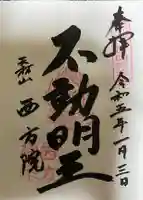 奉拝 令和五年一月三日
不動明王
西方院